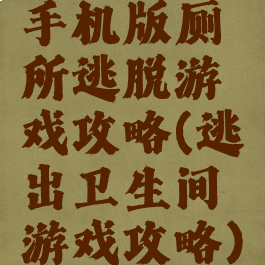 手机版厕
所逃脱游
戏攻略(逃
出卫生间
游戏攻略)